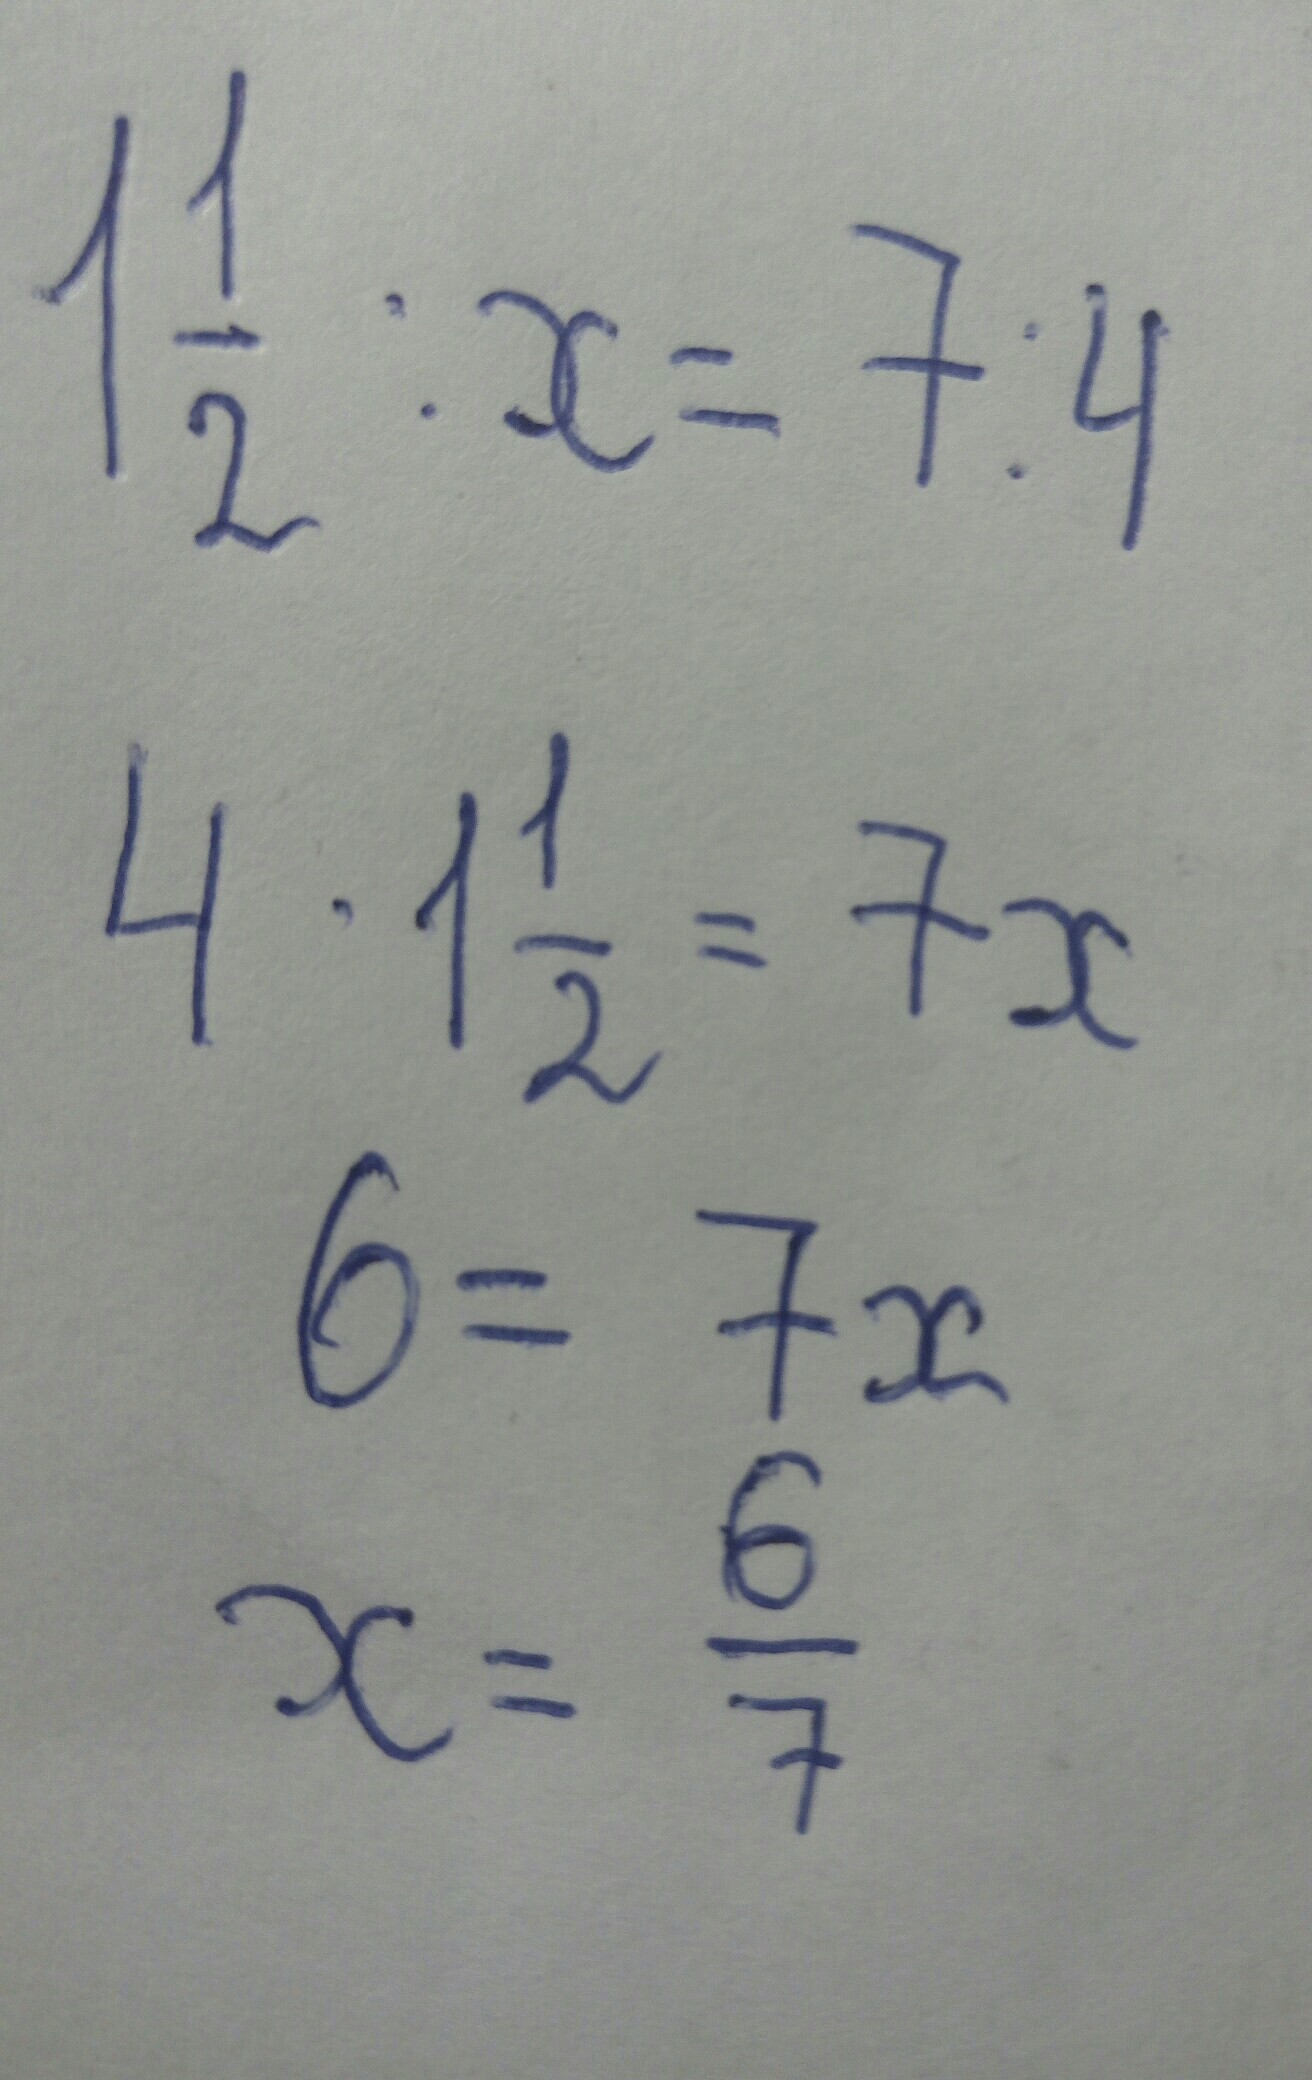 1 1/2 : x = 7 : 4
4 · 1 1/2 = 7x
6 = 7x
x = 6/7